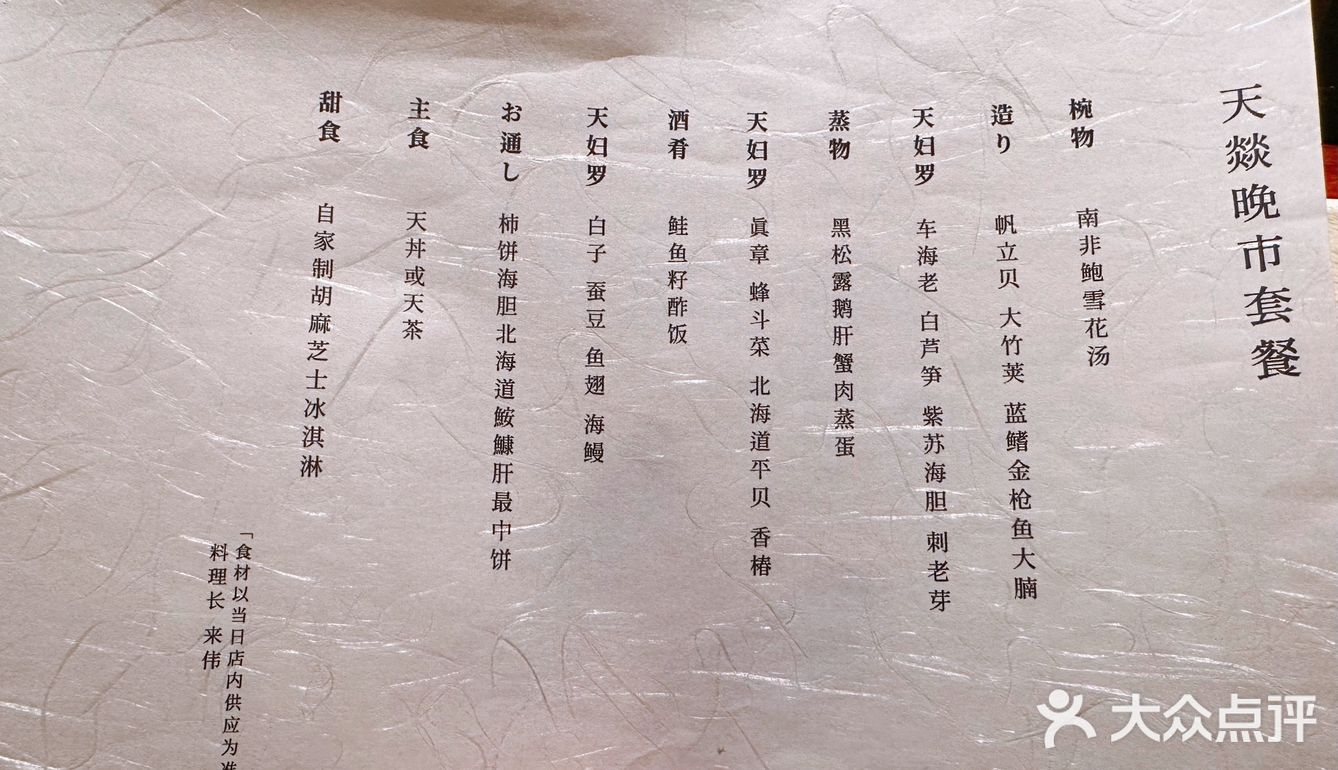 天燚晚市套餐
椀物 南非鲍雪花汤
造り 帆立贝 大竹荚 蓝鳍金枪鱼大腩
天妇罗 车海老 白芦笋 紫苏海胆 刺老芽
蒸物 黑松露鹅肝蟹肉蒸蛋
天妇罗 眞章 蜂斗菜 北海道平贝 香椿
酒肴 鲑鱼籽酢饭
天妇罗 白子 蚕豆 鱼翅 海鳗
お通し 柿饼海胆北海道鮟鱇肝最中饼
主食 天丼或天茶
甜食 自家制胡麻芝士冰淇淋
「食材以当日店内供应为准
料理长 来伟
大众点评